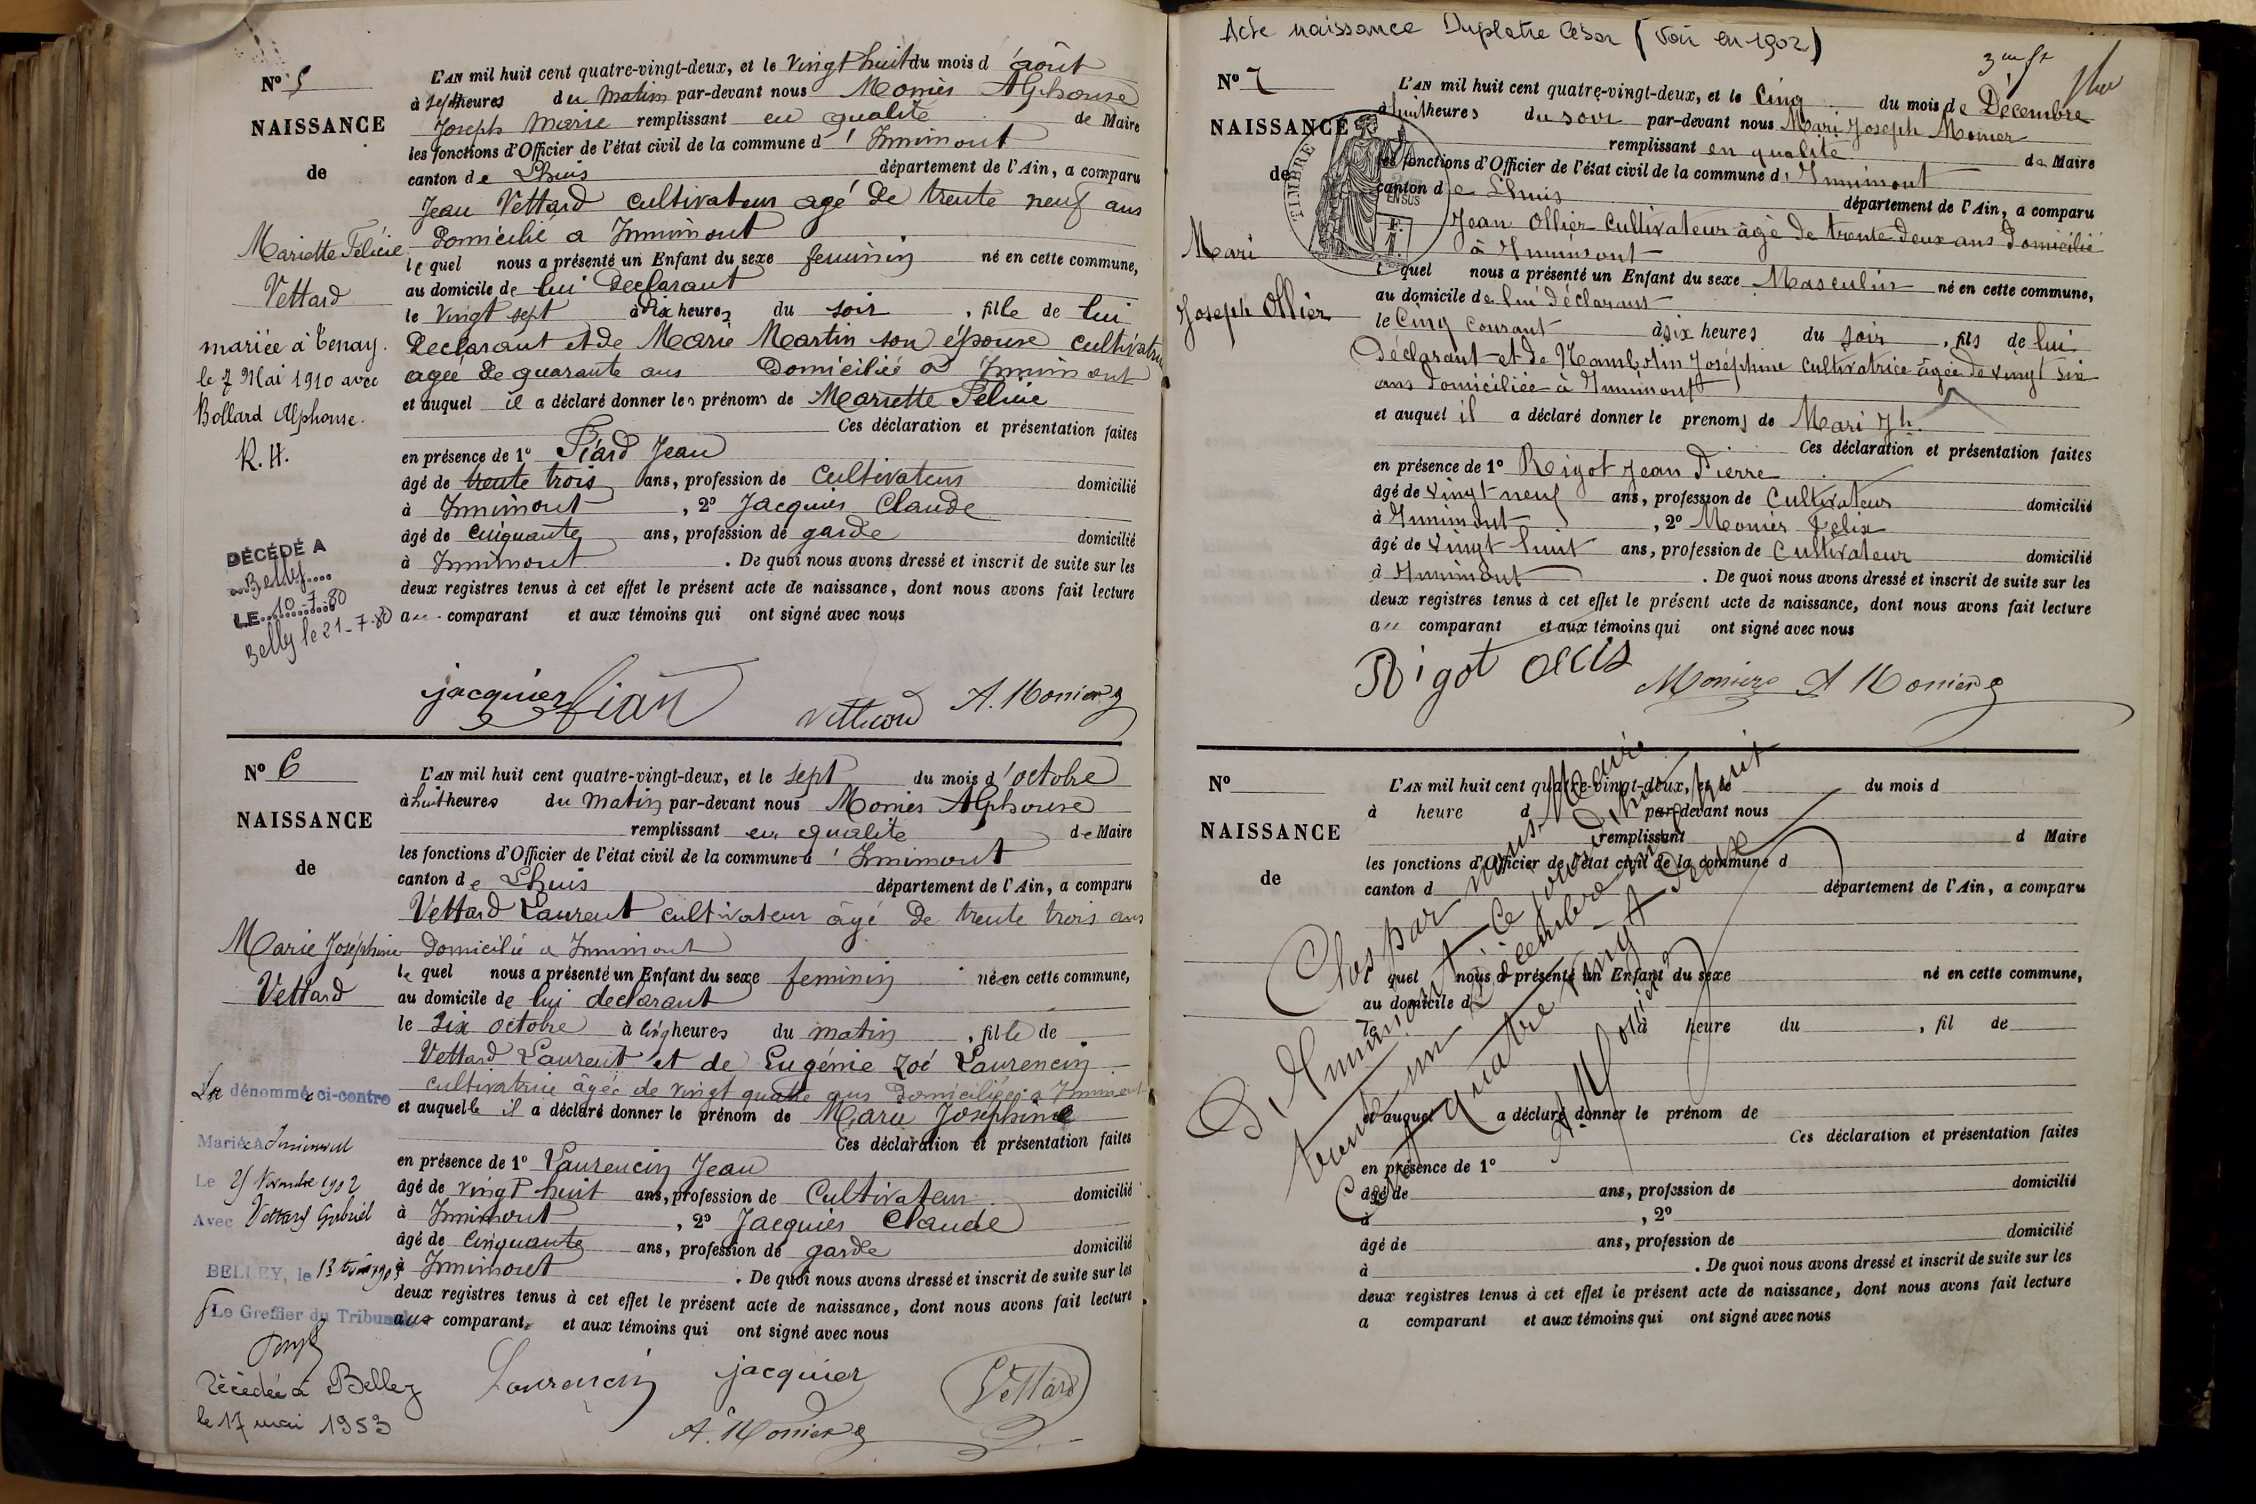 Nº 5
NAISSANCE
de
Mariette Félicie
Vettard
mariée à Tenay.
le 7 Mai 1910 avec
Bollard Alphonse.
R.H.
DÉCÉDÉ A
Belley
LE 10-7-80
Belley le 21-7-80
L'AN mil huit cent quatre-vingt-deux, et le vingt huit du mois d'août
à sept heures du matin par-devant nous Monier Alphonse
Joseph Marie remplissant en qualité de Maire
les fonctions d'Officier de l'état civil de la commune d'Innimont
canton de Lhuis département de l'Ain, a comparu
Jean Vettard cultivateur agé de trente neuf ans
domicilié a Innimont
lequel nous a présenté un Enfant du sexe feminin né en cette commune,
au domicile de lui declarant
le vingt sept à dix heures du soir, fille de lui
declarant et de Marie Martin son épouse cultivatrice
agée de quarante ans domiciliée à Innimont
et auquel il a déclaré donner les prénoms de Mariette Félicie
Ces déclaration et présentation faites
en présence de 1º Fiard Jean
âgé de trente trois ans, profession de cultivateur domicilié
à Innimont, 2º Jacquier Claude
âgé de cinquante ans, profession de garde domicilié
à Innimont. De quoi nous avons dressé et inscrit de suite sur les
deux registres tenus à cet effet le présent acte de naissance, dont nous avons fait lecture
au comparant et aux témoins qui ont signé avec nous
jacquier Vettard A. Monier
Nº 6
NAISSANCE
de
Marie Joséphine
Vettard
La dénommée ci-contre
Mariée à Innimont
Le 25 Novembre 1902
Avec Vettard Gabriel
BELLEY, le 13
Le Greffier du Tribunal
Décédée à Belley
le 17 mai 1953
L'AN mil huit cent quatre-vingt-deux, et le sept du mois d'octobre
à huit heures du matin par-devant nous Monier Alphonse
remplissant en qualité de Maire
les fonctions d'Officier de l'état civil de la commune d'Innimont
canton de Lhuis département de l'Ain, a comparu
Vettard Laurent cultivateur âgé de trente trois ans
domicilié a Innimont
le quel nous a présenté un Enfant du sexe feminin née en cette commune,
au domicile de lui declarant
le six octobre à cinq heures du matin, fille de
Vettard Laurent et de Eugénie Zoé Laurencin
cultivatrice âgée de vingt quatre ans domiciliée a Innimont
et auquelle il a déclaré donner le prénom de Marie Joséphine
Ces déclaration et présentation faites
en présence de 1º Laurencin Jean
âgé de vingt huit ans, profession de Cultivateur domicilié
à Innimont, 2º Jacquier Claude
âgé de cinquante ans, profession de garde domicilié
à Innimont. De quoi nous avons dressé et inscrit de suite sur les
deux registres tenus à cet effet le présent acte de naissance, dont nous avons fait lecture
aux comparants et aux témoins qui ont signé avec nous
Laurencin jacquier Vettard
A. Monier
Acte naissance Duplatre César (Voir en 1902)
Nº 7
NAISSANCE
de
Mari
Joseph Ollier
TIMBRE
EN SUS
L'AN mil huit cent quatre-vingt-deux, et le Cinq du mois de Décembre
à huit heures du soir par-devant nous Mari Joseph Monier
remplissant en qualité de Maire
les fonctions d'Officier de l'état civil de la commune d'Innimont
canton de Lhuis département de l'Ain, a comparu
Jean Ollier cultivateur âgé de trente deux ans domicilié
à Innimont
l quel nous a présenté un Enfant du sexe Masculin né en cette commune,
au domicile de lui déclarant
le Cinq courant à six heures du soir, fils de lui
déclarant et de Nambotin Joséphine cultivatrice âgée de vingt six
ans domiciliée à Innimont
et auquel il a déclaré donner le prenoms de Mari Jh.
Ces déclaration et présentation faites
en présence de 1º Rigot Jean Pierre
âgé de vingt neuf ans, profession de Cultivateur domicilié
à Innimont, 2º Monier Felix
âgé de vingt huit ans, profession de Cultivateur domicilié
à Innimont. De quoi nous avons dressé et inscrit de suite sur les
deux registres tenus à cet effet le présent acte de naissance, dont nous avons fait lecture
au comparant et aux témoins qui ont signé avec nous
Rigot Monier A Monier
Nº
NAISSANCE
de
L'AN mil huit cent quatre-vingt-deux, et le du mois d
à heure d par-devant nous
remplissant d Maire
les fonctions d'Officier de l'état civil de la commune d
canton d département de l'Ain, a comparu
l quel nous a présenté un Enfant du sexe né en cette commune,
au domicile d
le à heure du, fil de
et auquel a déclaré donner le prénom de
Ces déclaration et présentation faites
en présence de 1º
âgé de ans, profession de domicilié
à, 2º
âgé de ans, profession de domicilié
à. De quoi nous avons dressé et inscrit de suite sur les
deux registres tenus à cet effet le présent acte de naissance, dont nous avons fait lecture
a comparant et aux témoins qui ont signé avec nous
Clos par nous Maire
d'Innimont ce jourd'hui
trente un Décembre mil huit
Cent quatre vingt deux
A. Monier